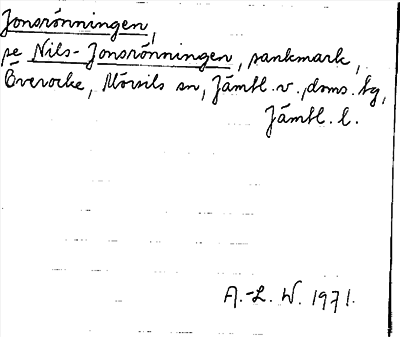 Jonsrönningen,
se Nils-Jonsrönningen, sankmark,
Överocke, Mörsils sn, Jämtl. v. doms. tg,
Jämtl. l.
A.-L. W. 1971.